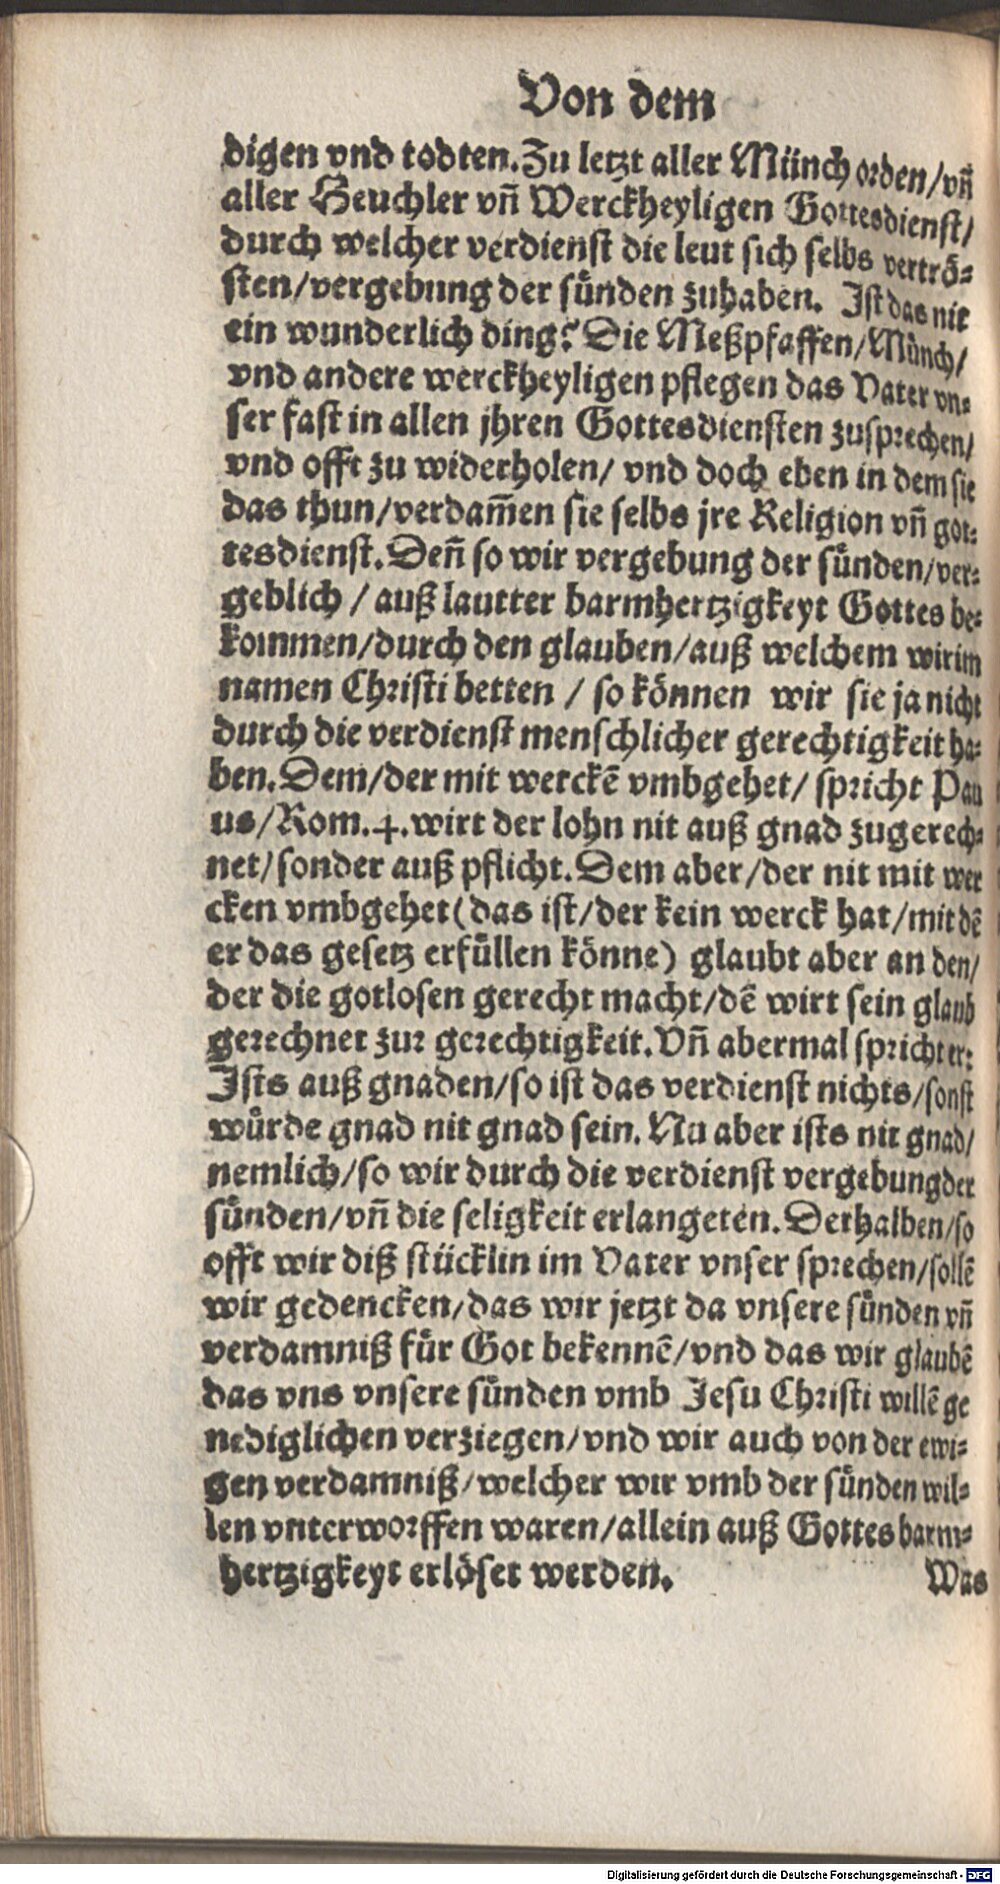 Von dem
digen vnd todten. Zu letzt aller Münch orden/vñ
aller Heuchler vñ Werckheyligen Gottesdienst/
durch welcher verdienst die leut sich selbs vertrö⸗
sten/vergebung der sünden zuhaben. Ist das nit
ein wunderlich ding? Die Meßpfaffen/Münch/
vnd andere werckheyligen pflegen das Vater vn⸗
ser fast in allen jhren Gottesdiensten zusprechen/
vnd offt zu widerholen/ vnd doch eben in dem sie
das thun/verdam̄en sie selbs jre Religion vñ got⸗
tesdienst. Deñ so wir vergebung der sünden/ver⸗
geblich / auß lautter barmhertzigkeyt Gottes be⸗
kommen/durch den glauben/auß welchem wir im
namen Christi betten / so können wir sie ja nicht
durch die verdienst menschlicher gerechtigkeit ha⸗
ben. Dem/der mit werckē vmbgehet/ spricht Pau
us/Rom. 4. wirt der lohn nit auß gnad zugerech⸗
net/sonder auß pflicht. Dem aber/der nit mit wer
cken vmbgehet (das ist/der kein werck hat/mit dē
er das gesetz erfüllen könne) glaubt aber an den/
der die gotlosen gerecht macht/dē wirt sein glaub
gerechnet zur gerechtigkeit. Vñ abermal spricht er:
Ists auß gnaden/so ist das verdienst nichts/sonst
würde gnad nit gnad sein. Nu aber ists nit gnad/
nemlich/so wir durch die verdienst vergebung der
sünden/vñ die seligkeit erlangeten. Derhalben/so
offt wir diß stücklin im Vater vnser sprechen/sollē
wir gedencken/das wir jetzt da vnsere sünden vñ
verdamniß für Got bekennē/vnd das wir glaubē
das vns vnsere sünden vmb Jesu Christi willē ge
nediglichen verziegen/vnd wir auch von der ewi⸗
gen verdamniß/welcher wir vmb der sünden wil⸗
len vnterworffen waren/allein auß Gottes barm⸗
hertzigkeyt erlöset werden.
Was
Digitalisierung gefördert durch die Deutsche Forschungsgemeinschaft - DFG